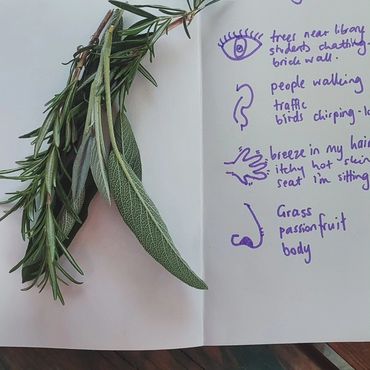 trees near library
students chatting
brick wall.
people walking
traffic
birds chirping
breeze in my hair
itchy hot skin
seat I'm sitting
Grass
passionfruit
body